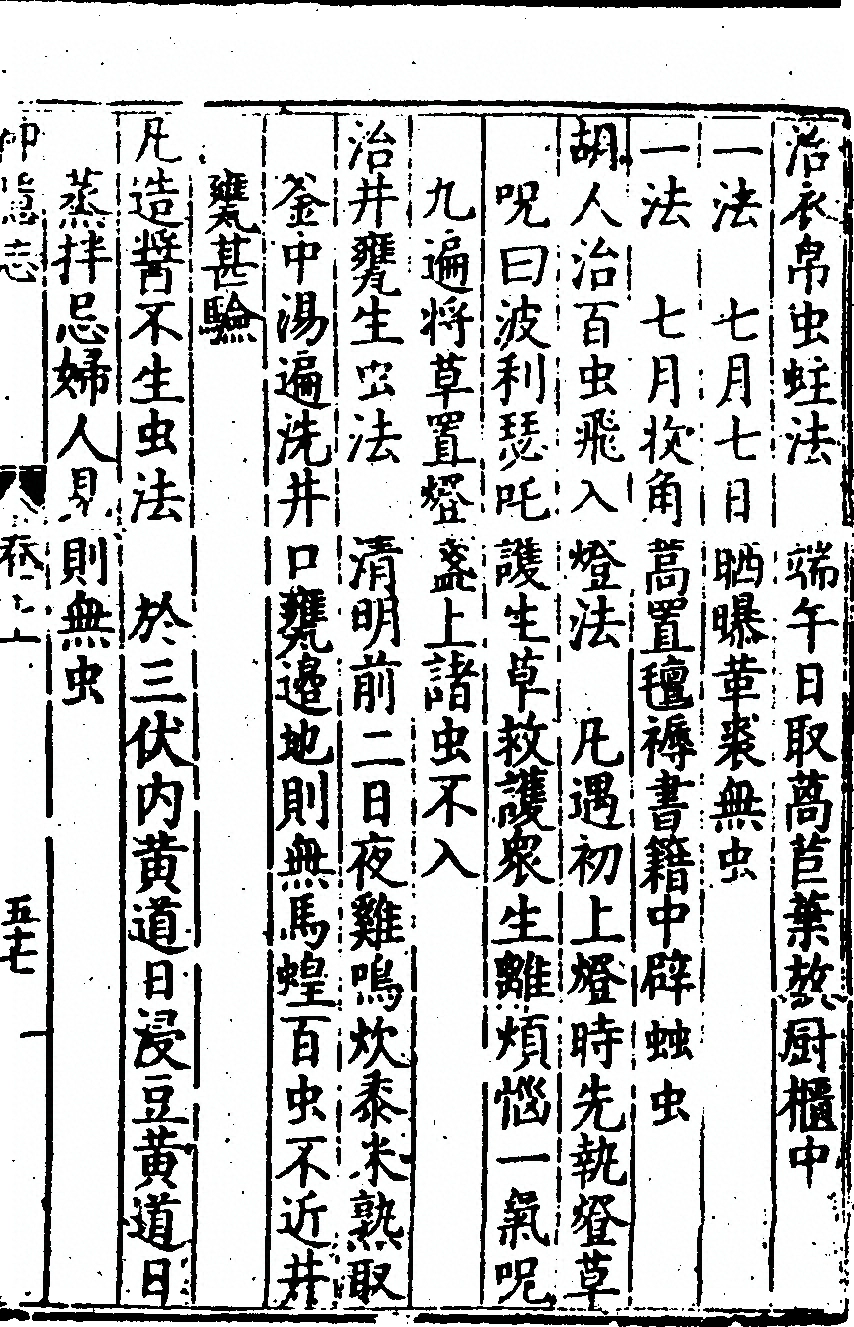 治衣帛虫蛀法　端午日取萵苣葉熬厨櫃中
一法　七月七日晒曝革裘無虫
一法　七月收角蒿置氊褥書籍中辟蚰虫
胡人治百虫飛入燈法　凡遇初上燈時先執燈草
呪曰波利瑟吒護生草救護衆生離煩惱一氣呪
九遍將草置燈盞上諸虫不入
治井甕生虫法　清明前二日夜雞鳴炊黍米熟取
釜中湯遍洗井口甕邊地則無馬蝗百虫不近井
甕甚驗
凡造醬不生虫法　於三伏内黄道日浸豆黄道日
蒸拌忌婦人見則無虫
志
五十七